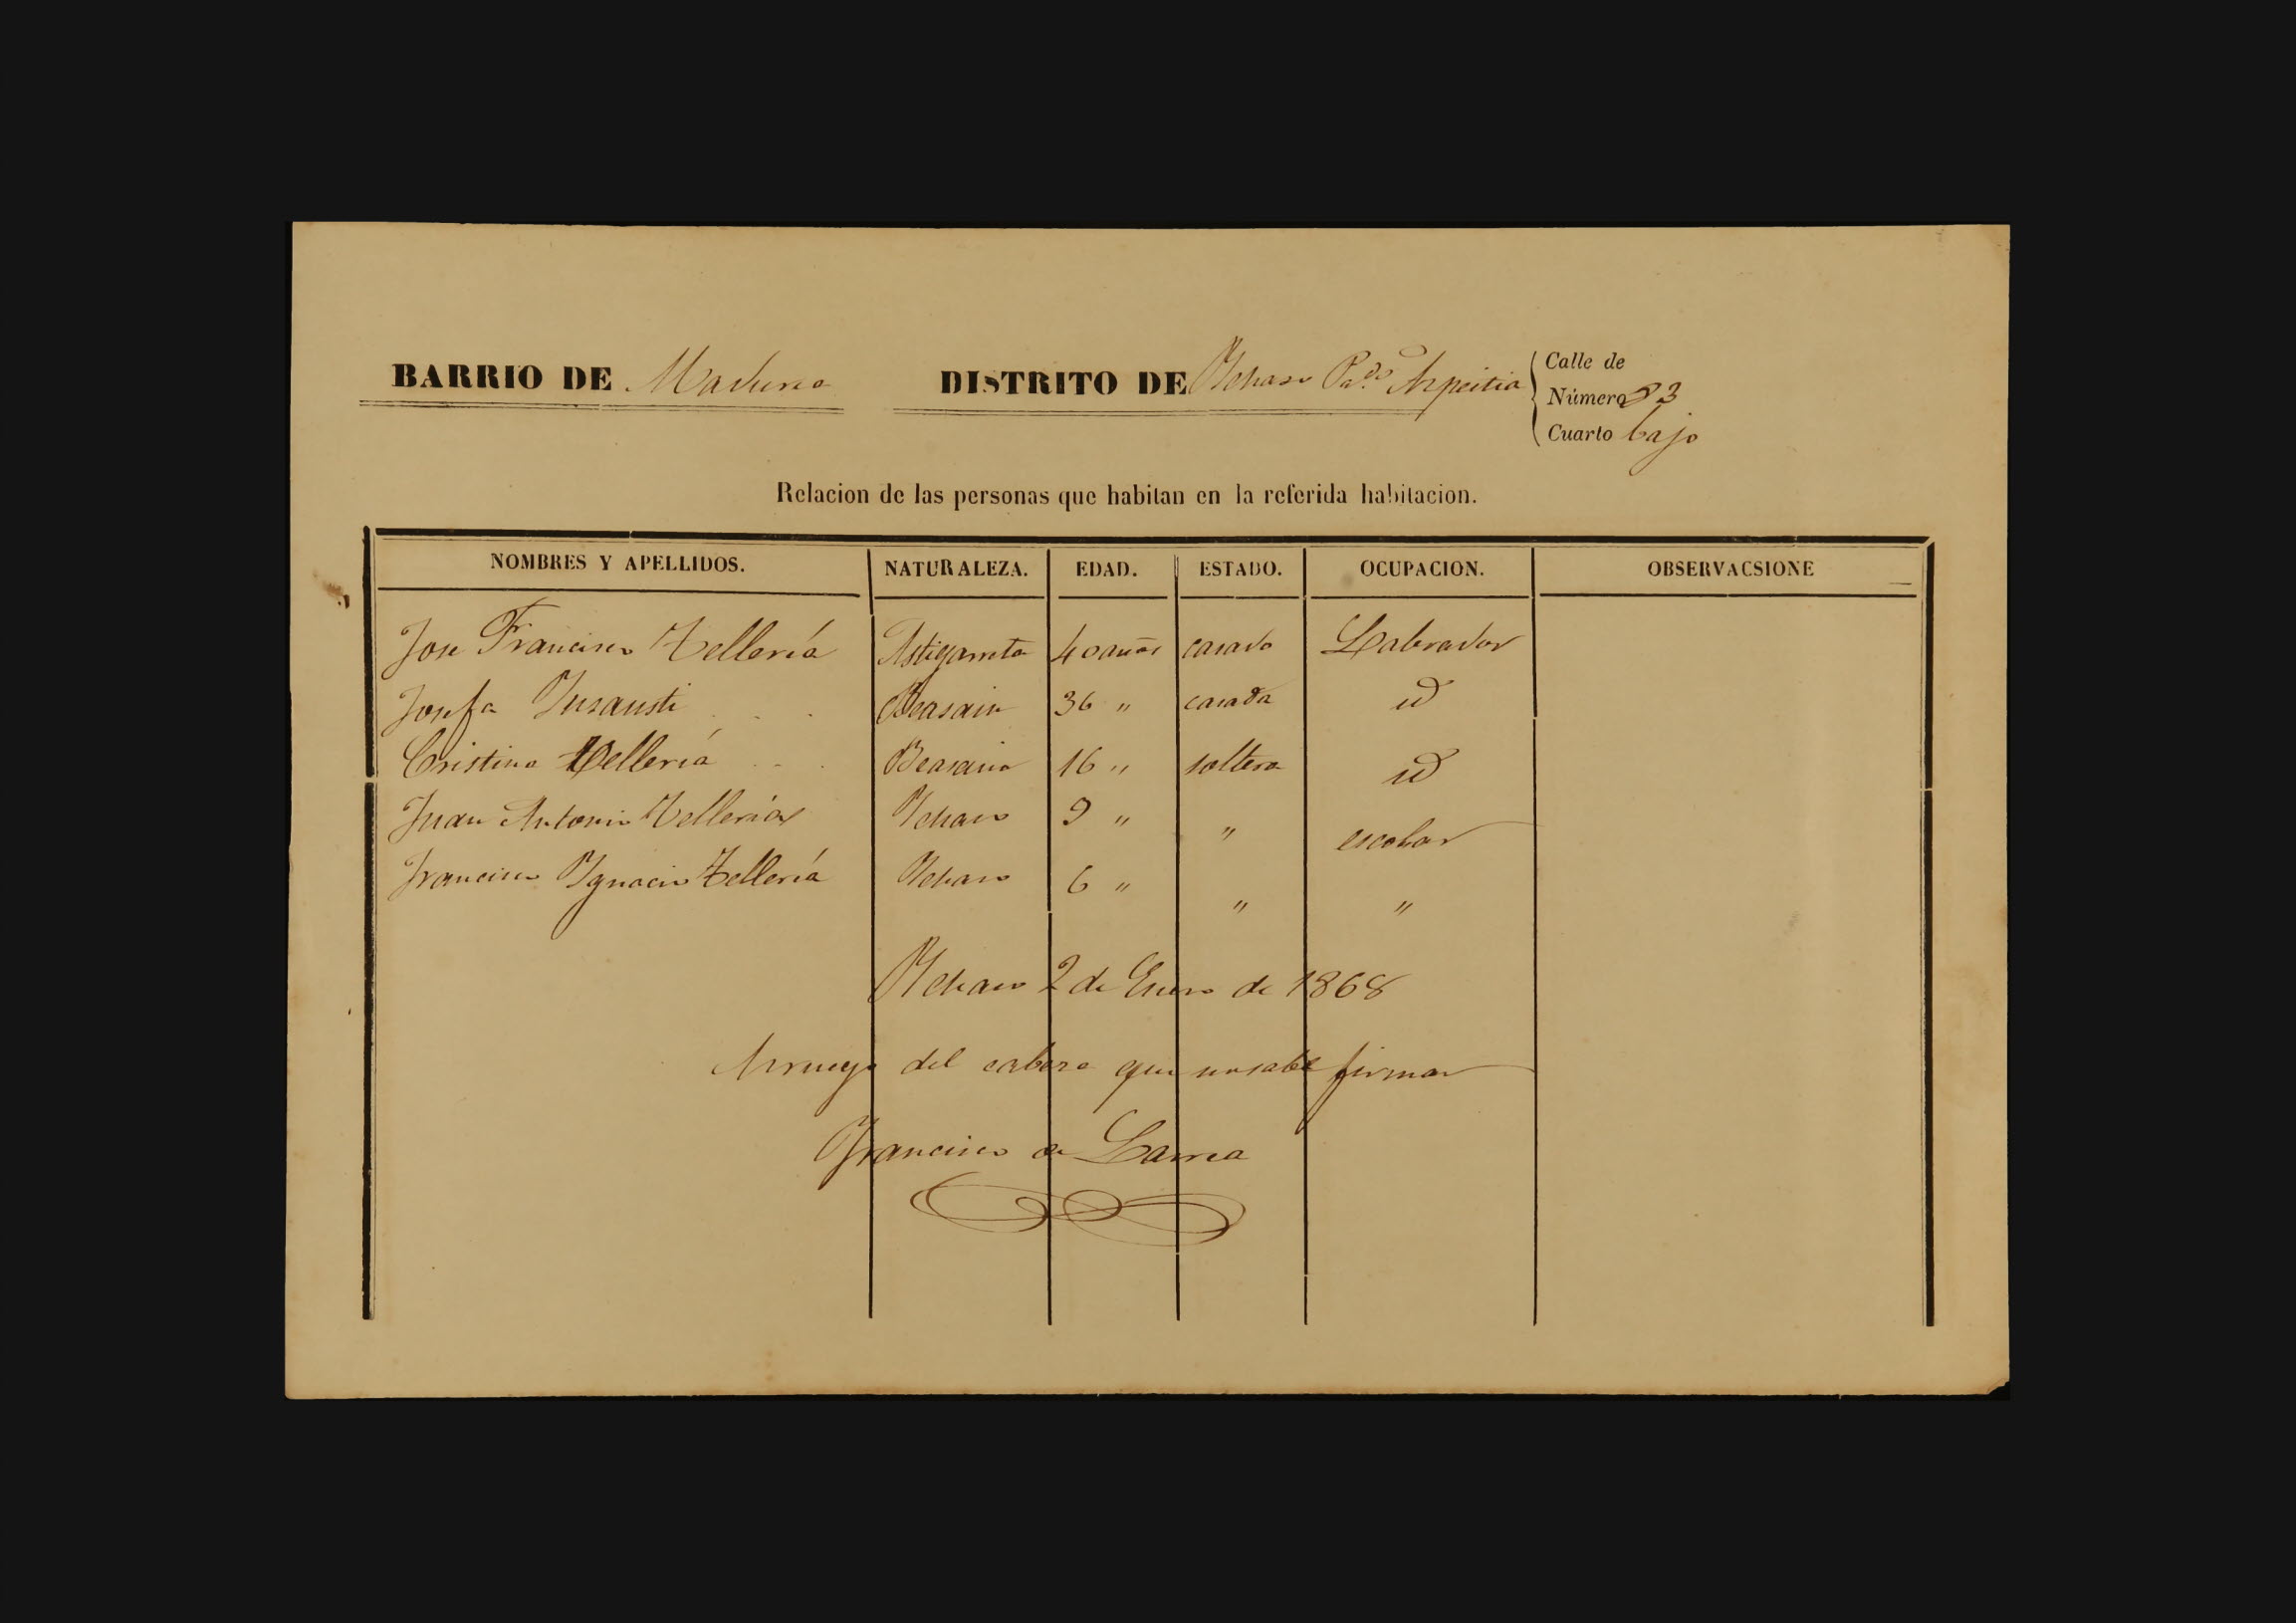 BARRIO DE Madura DISTRITO DE Ychaso Pa.do Azpeitia Calle de
Número 83
Cuarto bajo
Relacion de las personas que habitan en la referida habitacion.
NOMBRES Y APELLIDOS. NATURALEZA. EDAD. ESTADO. OCUPACION. OBSERVACSIONE
Jose Francisco Tellería Astigarreta 40 años casado Labrador
Josefa Ynsausti Beasain 36 " casada id
Cristina Tellería Beasain 16 " soltera id
Juan Antonio Tellería Ychaso 9 " " escolar
Francisco Ygnacio Tellería Ychaso 6 " " "
Ychaso 2 de Enero de 1868
Arruego del cabeza que no sabe firmar
Francisco de Larrea